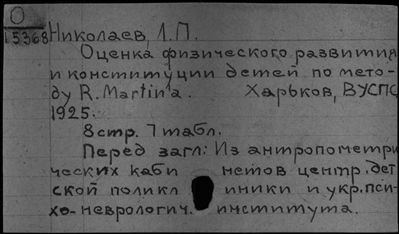 О
15368 Николаев, Л.П.
Оценка физического развития
и конституции детей по мето-
ду R. Martin'a. Харьков, ВУСПС
1925.
8 стр. 7 табл.
Перед загл: Из антропометри
ческих каби нетов центр. дет
ской поликл иники и укр. пси-
хо-неврологич. института.